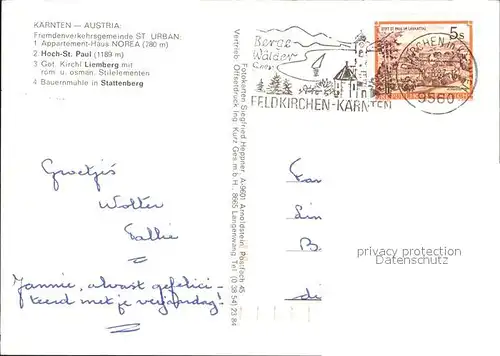 KÄRNTEN — AUSTRIA:
Fremdenverkehrsgemeinde ST. URBAN:
1 Appartement-Haus NOREA (780 m)
2 Hoch-St. Paul (1189 m)
3 Got. Kirchl Liemberg mit
rom u. osman. Stilelementen
4 Bauernmühle in Stattenberg
Berge
Wälder
Seen
FELDKIRCHEN-KÄRNTEN
5s
9560
Fotokarten Siegfried Heppner, A-9601 Arnoldstein, Postfach 45
Vertrieb: Offsetdruck Ing. Kurz Ges.m.b.H., 8665 Langenwang, Tel. (0 38 54) 23 84
Groetjes
Wolter
Jannie, alvast gefelici-
teerd met je verjaardag!
privacy protection
Datenschutz